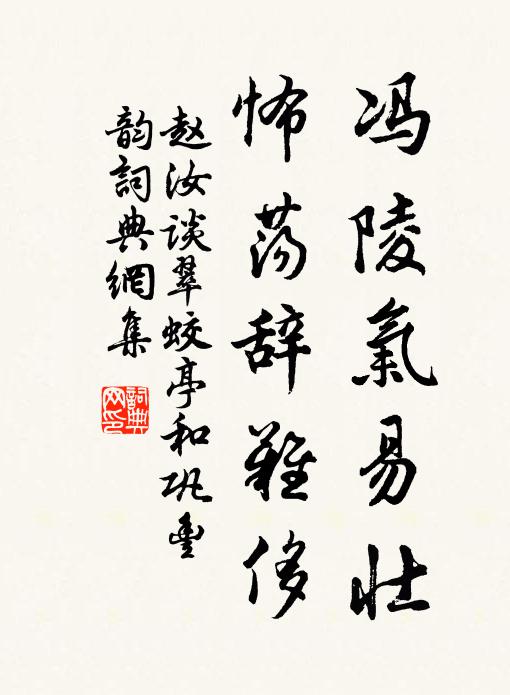 冯陵氣易壮
怖荡辞難侈
赵汝谈翠蛟亭和巩豐
韵詞典網集
詞典网印